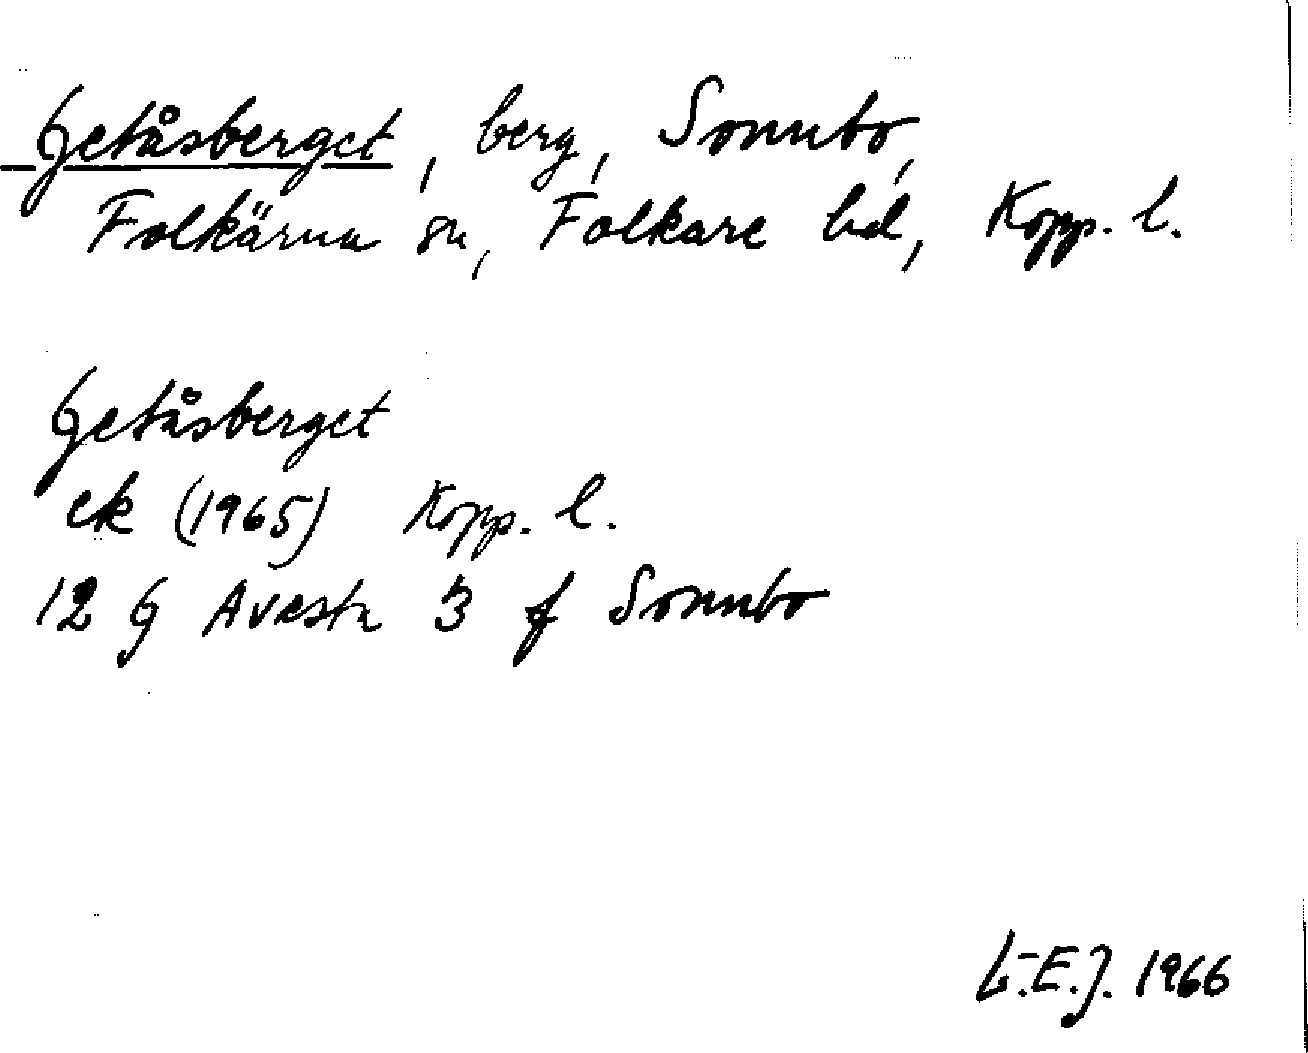 Getåsberget, berg, Sonnbo,
Folkärna sn, Folkare hd, Kopp. l.
Getåsberget
ek (1965) Kopp. l.
12 G Avesta 3 f Sonnbo
L.-E.J. 1966